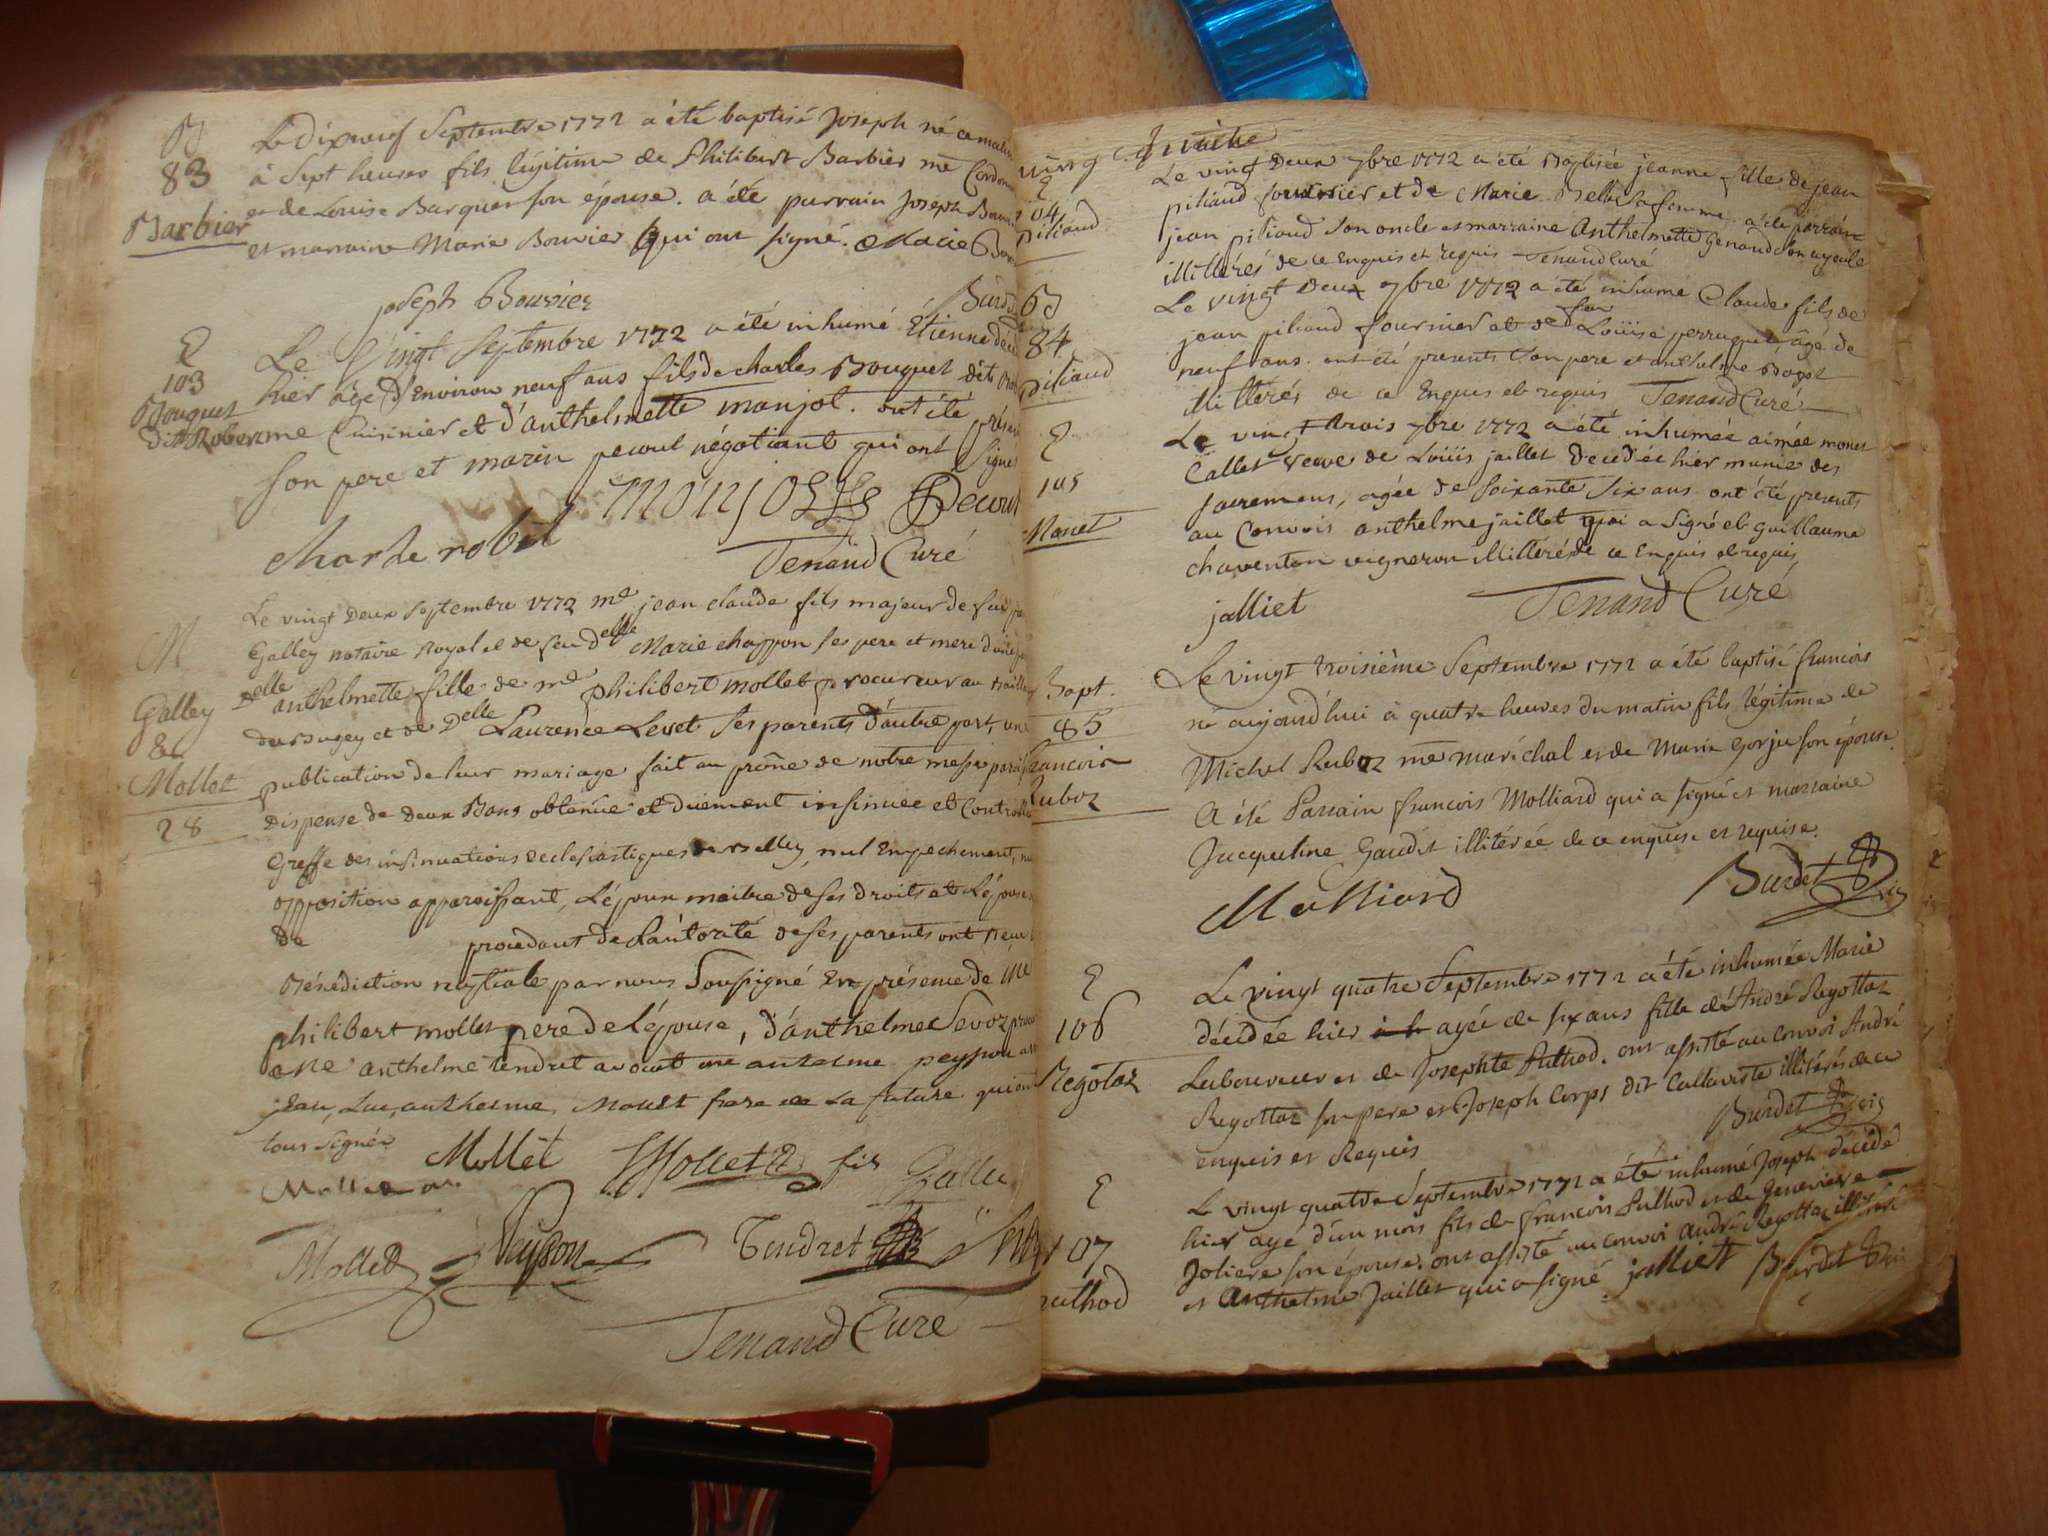 B
83
Barbier
Le Dixneuf Septembre 1772 a été baptisé Joseph né ce matin
à Sept heures fils légitime de Philibert Barbier me Cordon
et de Louise Barquier son épouse. a été parrain Joseph Bouvier
et marraine Marie Bouvier qui ont signé. Marie Bou
joseph Bouvier
Burd
E
103
Bouquet
Dit Robert
Le Vingt Septembre 1772 a été inhumé Étienne décédé
hier âgé D'Environ neuf ans fils de charles Bouquet dit
me Cuisinier et d'anthelmette monjot. ont été présen
son pere et marin pecoul négotiant qui ont signé
charle robet
Tenand Curé
M
Galley
&
Mollet
28
Le vingt Deux Septembre 1772 me jean claude fils majeur de feu
Galley notaire Royal et de feu delle Marie chappon ses pere et mere d'une
Delle anthelmette fille de me philibert mollet procureur au Bailla
du Bugey et de Delle Laurence Levet ses parents d'autre part, une
publication de leur mariage fait au prône de notre messe paroi
dispense de deux Bans obtenue et duement insinuée et Control
Greffe des insinuations Ecclesiastiques de Belley, nul Empechement, n
opposition apparoissant, L'époux maitre de ses droits et L'épouse
de procedant de L'autorité de ses parents ont Recu
Bénédiction nuptiale par nous Soussigné En présence de me
philibert mollet pere de L'épouse, d'anthelme Sevoz
me anthelme tendret avocat me anthelme peysson
jean, Luc, anthelme Mollet frere de La future qui ont
tous signés
Mollet
Mollet fils
Galley
Mollet
Peysson
Tendret
Tenand Curé
E
104
piliaud
Le vingt Deux 7bre 1772 a été Baptisée jeanne fille de jean
piliaud fournier et de Marie Belle sa femme a été parrain
jean piliaud son oncle et marraine Anthelmette Genaud son ayeule
illitérés de ce Enquis et requis Tenand Curé
B
84
piliaud
Le vingt Deux 7bre 1772 a été inhumé Claude fils de
jean piliaud fournier et de feu Loüise perruquet, âgé de
neuf ans. ont été presents son pere et anthelme Bogot
illitérés de ce Enquis et requis Tenand Curé
E
105
Monet
Le vingt trois 7bre 1772 a été inhumée aimée monet
Callet veuve de Loüis jaillet Decedée hier munie des
sacremens, agée de soixante six ans ont été presents
au Convois anthelme jaillet qui a signé et guillaume
chaventon vigneron illitéré de ce Enquis et requis
jalliet
Tenand Curé
Bapt.
85
francois
Ruboz
Le vingt troisième Septembre 1772 a été baptisé francois
né aujourd'hui à quatre heures du matin fils légitime de
Michel Ruboz me maréchal et de Marie Gorju son épouse.
A été Parrain francois Molliard qui a signé et marraine
Jacqueline Gaudet illitérée de ce enquise et requise.
Molliard
Burdet
E
106
Regotaz
Le vingt quatre Septembre 1772 a été inhumée Marie
décédée hier agée de six ans fille de André Regottaz
Laboureur et de Josephte Pulhod. ont assisté au Convoi André
Regottaz son pere et Joseph Corps dit Callaviste illitérés de ce
enquis et Requis
Burdet
E
107
Pulhod
Le vingt quatre Septembre 1772 a été inhumé Joseph décédé
hier agé d'un mois fils de francois Pulhod et de Genevieve
Joliere son épouse. ont assisté au convoi André Regottaz illitéré
et Anthelme Jaillet qui a signé jalliet Burdet